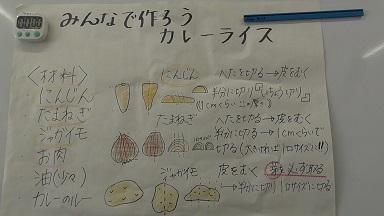 みんなで作ろう
カレーライス
<材料>
にんじん
たまねぎ
ジャガイモ
お肉
油(少々)
カレーのルー
にんじん
へたを切る→皮をむく
半分に切り
(1cmくらいの厚さ)
たまねぎ
へたを切る→皮をむく
半分に切る→1cmくらいで
切る(大きければ1口サイズに!!)
ジャガイモ
皮をむく
芽を必ずとる
→半分に切り1口サイズに切る